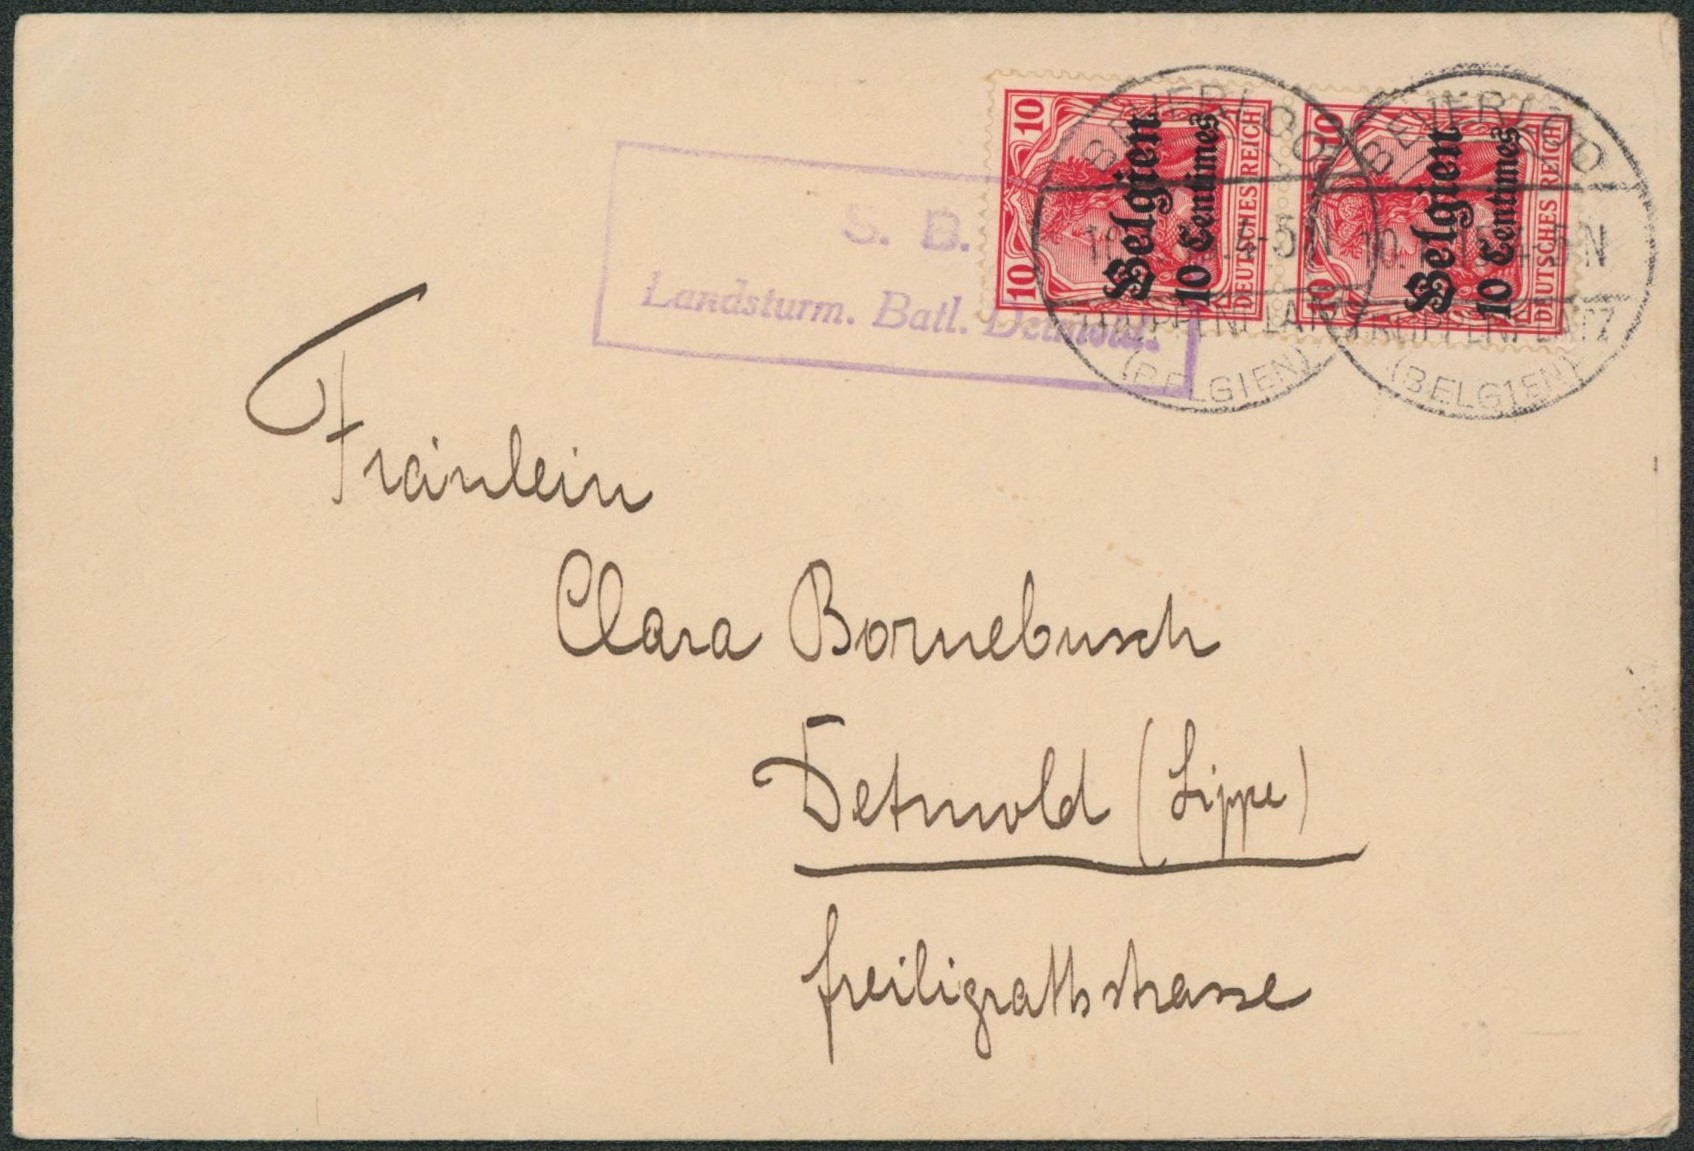 S. B.
Landsturm. Batl. Detmold.
10
10
Belgien
10 Centimes
DEUTSCHES REICH
10
10
Belgien
10 Centimes
DEUTSCHES REICH
BEVERLOO
4-5N
TRUPPENPLATZ
(BELGIEN)
BEVERLOO
10. 4-5N
TRUPPENPLATZ
(BELGIEN)
Fräulein
Clara Bornebusch
Detmold (Lippe)
Freiligrathstrasse